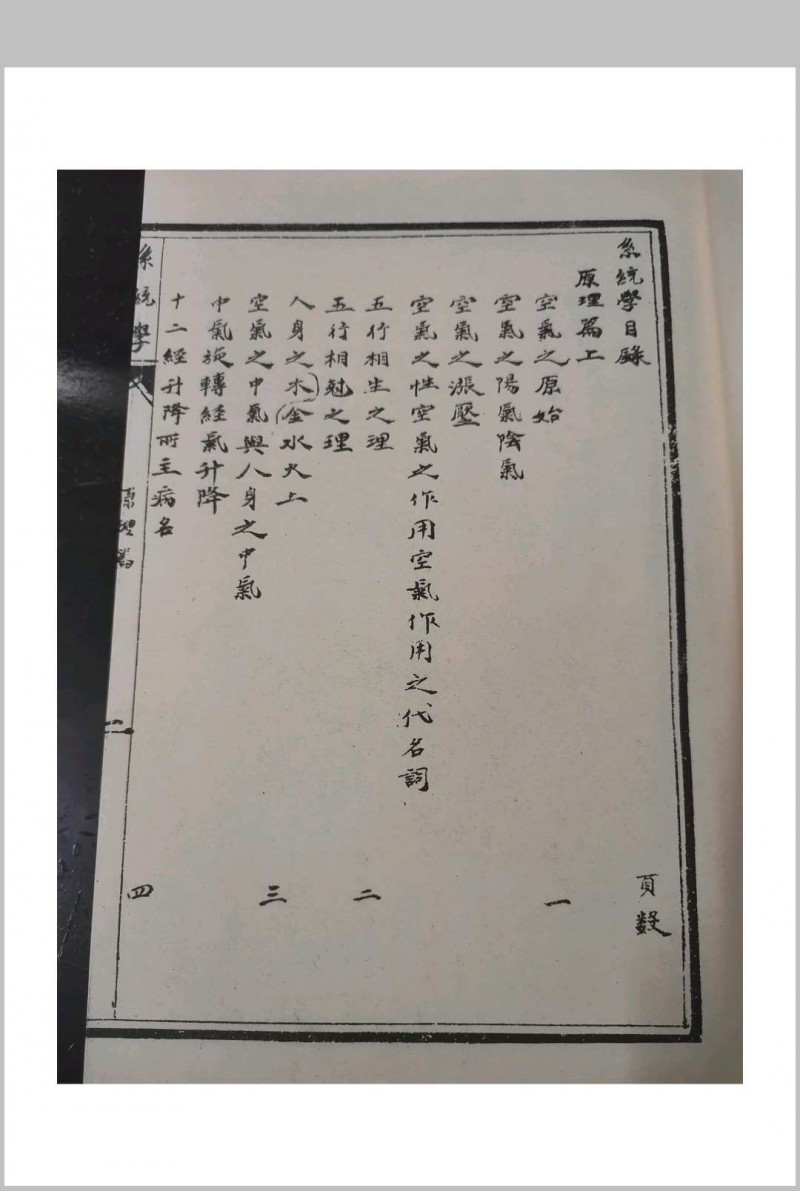 系統學目錄
頁數
原理篇上
空氣之原始
一
空氣之陽氣陰氣
空氣之漲壓
空氣之性空氣之作用空氣作用之代名詞
五行相生之理
二
五行相尅之理
人身之木金水火土
三
空氣之中氣與人身之中氣
中氣旋轉經氣升降
十二經升降所主病名
四
系統學
原理篇
二